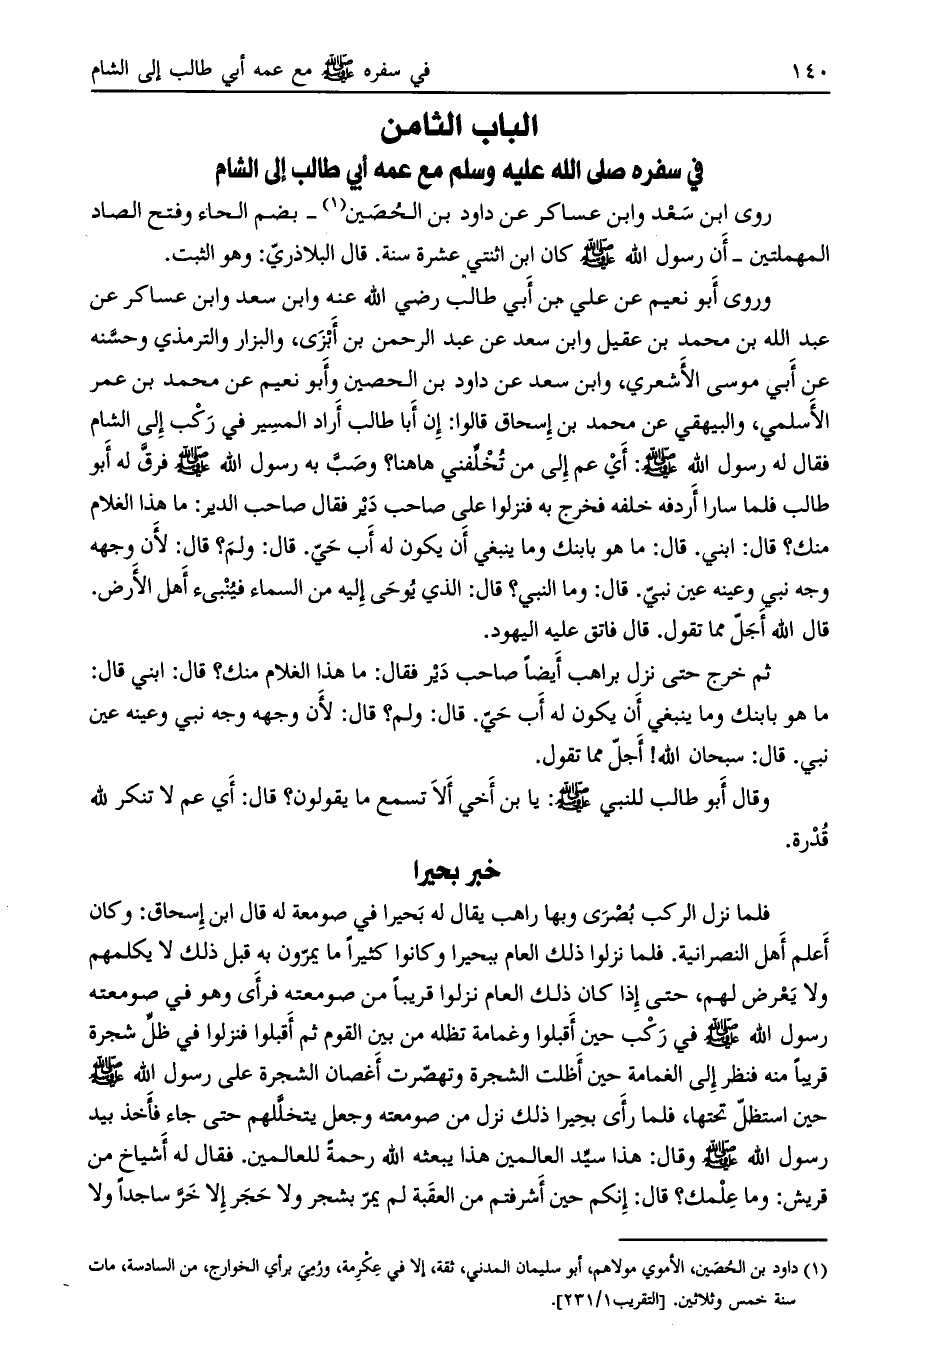 ١٤٠ في سفره ﷺ مع عمه أبي طالب إلى الشام
الباب الثامن
في سفره صلى الله عليه وسلم مع عمه أبي طالب إلى الشام
روى ابن سَعْد وابن عساكر عن داود بن الحُصَين(١) ـ بضم الحاء وفتح الصاد
المهملتين ـ أن رسول الله ﷺ كان ابن اثنتي عشرة سنة. قال البلاذريّ: وهو الثبت.
وروى أبو نعيم عن علي بن أبي طالب رضي الله عنه وابن سعد وابن عساكر عن
عبد الله بن محمد بن عقيل وابن سعد عن عبد الرحمن بن أَبْزَى، والبزار والترمذي وحسَّنه
عن أبي موسى الأشعري، وابن سعد عن داود بن الحصين وأبو نعيم عن محمد بن عمر
الأسلمي، والبيهقي عن محمد بن إسحاق قالوا: إن أبا طالب أراد المسِير في رَكْب إلى الشام
فقال له رسول الله ﷺ: أيْ عم إلى من تُخْلِّفني هاهنا؟ وصَبَّ به رسول الله ﷺ فرقَّ له أبو
طالب فلما سارا أردفه خلفه فخرج به فنزلوا على صاحب دَيْر فقال صاحب الدير: ما هذا الغلام
منك؟ قال: ابني. قال: ما هو بابنك وما ينبغي أن يكون له أب حَيّ. قال: ولمَ؟ قال: لأن وجهه
وجه نبي وعينه عين نبيّ. قال: وما النبي؟ قال: الذي يُوحَى إليه من السماء فيُنْبىء أهل الأرض.
قال الله أَجَلّ مما تقول. قال فاتق عليه اليهود.
ثم خرج حتى نزل براهب أيضاً صاحب دَيْر فقال: ما هذا الغلام منك؟ قال: ابني قال:
ما هو بابنك وما ينبغي أن يكون له أب حَيّ. قال: ولم؟ قال: لأن وجهه وجه نبي وعينه عين
نبي. قال: سبحان الله! أجلّ مما تقول.
وقال أبو طالب للنبي ﷺ: يا بن أخي ألاَ تسمع ما يقولون؟ قال: أي عم لا تنكر لله
قُدْرة.
خبر بحيرا
فلما نزل الركب بُصْرَى وبها راهب يقال له بَحيرا في صومعة له قال ابن إسحاق: وكان
أعلم أهل النصرانية. فلما نزلوا ذلك العام ببحيرا وكانوا كثيراً ما يمرّون به قبل ذلك لا يكلمهم
ولا يَعْرض لهم، حتى إذا كان ذلك العام نزلوا قريباً من صومعته فرأى وهو في صومعته
رسول الله ﷺ في رَكْب حين أقبلوا وغمامة تظله من بين القوم ثم أقبلوا فنزلوا في ظلِّ شجرة
قريباً منه فنظر إلى الغمامة حين أظلت الشجرة وتهصّرت أغصان الشجرة على رسول الله ﷺ
حين استظلّ تحتها، فلما رأى بحيرا ذلك نزل من صومعته وجعل يتخلَّلهم حتى جاء فأخذ بيد
رسول الله ﷺ وقال: هذا سيِّد العالمين هذا يبعثه الله رحمةً للعالمين. فقال له أشياخ من
قريش: وما عِلْمك؟ قال: إنكم حين أشرفتم من العقَبة لم يمرّ بشجر ولا حَجَر إلا خَرَّ ساجداً ولا
(١) داود بن الحُصَين، الأموي مولاهم، أبو سليمان المدني، ثقة، إلا في عِكْرمة، ورُمِيَ برأي الخوارج، من السادسة، مات
سنة خمس وثلاثين. [التقريب ٢٣١/١].